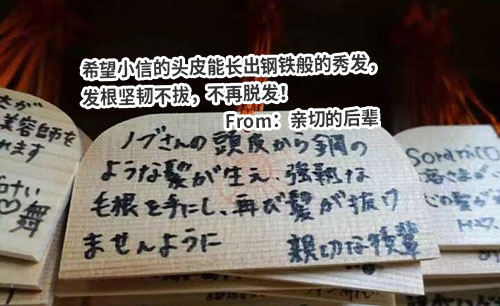 希望小信的头皮能长出钢铁般的秀发，
发根坚韧不拔，不再脱发！
From：亲切的后辈
ノブさんの頭皮から鋼の
ような髪が生え、強靱な
毛根を手にし、再び髪が抜け
ませんように
親切な後輩
美容師を
れます
舞